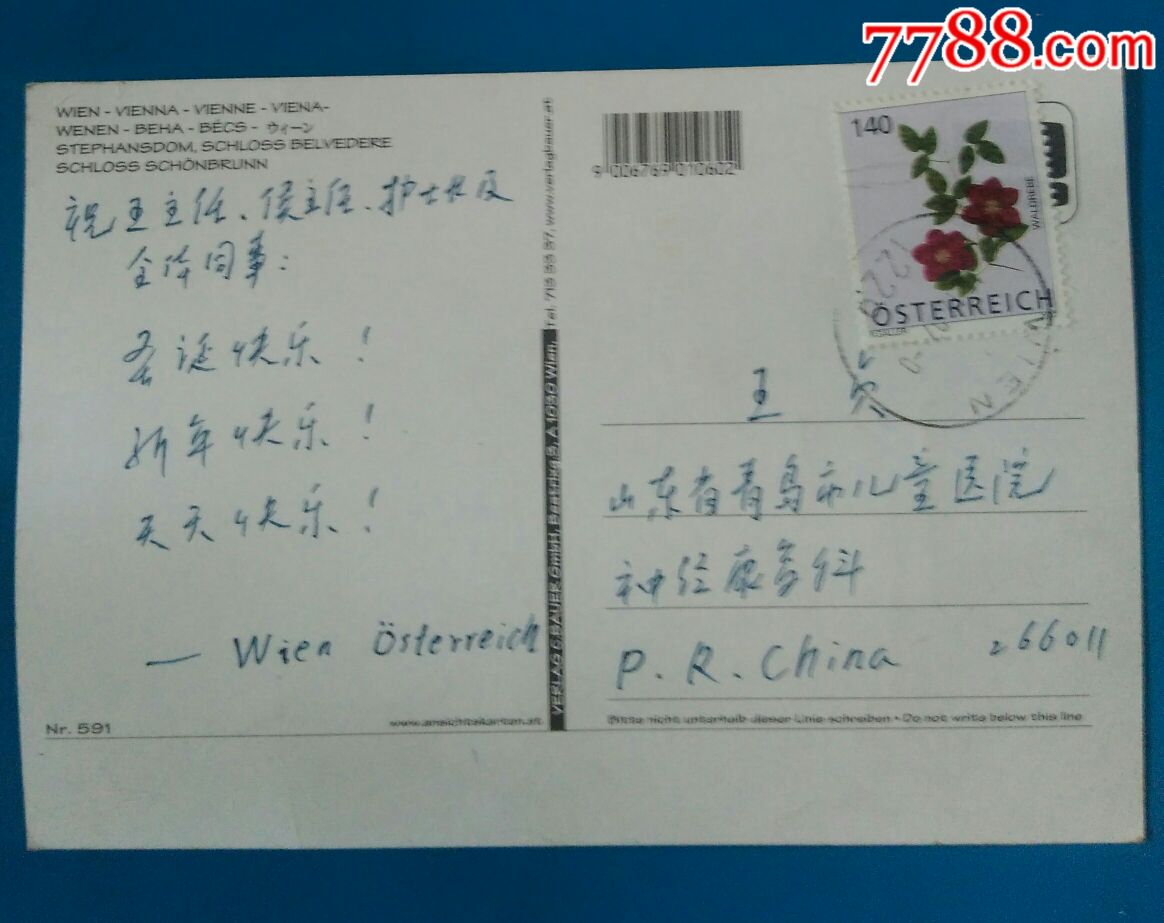 7788.com
WIEN - VIENNA - VIENNE - VIENA-
WENEN - BEHA - BÉCS - ウィーン
STEPHANSDOM, SCHLOSS BELVEDERE
SCHLOSS SCHÖNBRUNN
祝王主任、侯主任、护士长及
全体同事：
圣诞快乐！
新年快乐！
天天快乐！
— Wien Österreich
Nr. 591
www.ansichtskarten.at
VERLAG G.BAUER GmbH, A 1030 Wien, Tel. 713 53 37, www.verlagbauer.at
9 006769 010602
140
WALDREBE
ÖSTERREICH
WIEN
王
山东省青岛市儿童医院
神经康复科
P.R.China 266011
Bitte nicht unterhalb dieser Linie schreiben • Do not write below this line